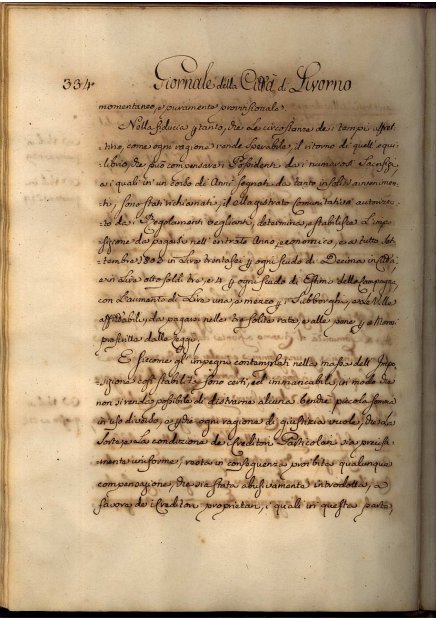 334. Giornale della Città di Livorno
momentaneo, e puramente provvisionale.
Nella fiducia pertanto, che le circostanze dei tempi affret-
tino, come ogni ragione rende sperabile, il ritorno di quell' equi-
librio, che può compensare i Possidenti dei numerosi Sacrifizj,
a i quali in un corso di Anni segnati da tanto insoliti avvenimen-
ti, sono stati richiamati, il Magistrato Comunitativo autorizza-
to da i Regolamenti veglianti, determina, e stabilisce l'impo-
sizione da pagarsi nell' entrante Anno economico, e a tutto Set-
tembre 180 in Lire trentasei per ogni scudo di Decima in Città,
e in Lire otto soldi tre, e 4 per ogni scudo di Estimo della Campagna,
con l'aumento di Lire una, e mezzo per i Subborghi, e le Ville
affittabili, da pagarsi nelle tre solite rate, e alle pene per i Morosi
prescritte dalle Leggi.
E siccome gl' impegni contemplati nella massa dell' Impo-
sizione così stabilita sono certi, ed immancabili, in modo che
non si renda possibile di distrarne alcuna benchè piccola somma
in uso diverso, e perchè ogni ragione di giustizia vuole, che la
Sorte, e la condizione de i Creditori Particolari sia precisa-
mente uniforme, resta in conseguenza proibita qualunque
compensazione, che sia stata abusivamente introdotta, a
favore de i Creditori proprietari, i quali in questa parte,